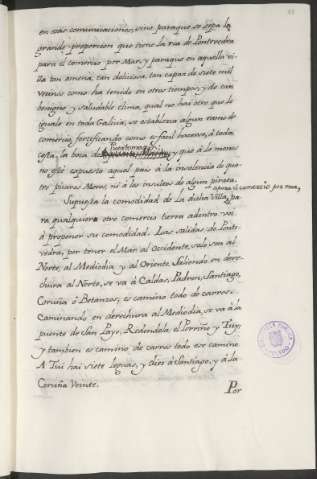 en estas comunicaciones, sino paraque se sepa la
grande proporcion que tiene la ria de Pontevedra
para el comercio por Mar, y paraque en aquella vi-
lla tan amena, tan deliciosa, tan capaz de siete mil
vecinos como ha tenido en otros tiempos, y de tan
benigno, y saludable clima, qual no hai otro que le
iguale en toda Galicia, se establezca algun ramo de
comercio, fortificando como es facil hacerlo, à toda
costa, la boca de y que à lo menos
no esté expuesto aquel pais à la insolencia de qua-
tro picaros Moros, ni à los insultos de algun pirata.
Supuesta la comodidad de la dicha Villa, pa-
para el comercio por mar,
ra qualquiera otro comercio tierra adentro voi
à proponer su comodidad. Las salidas de Pont-
vedra, por tener el Mar al Occidente, solo son al
Norte, al Mediodia y al Oriente. Saliendo en dere-
chura al Norte, se va à Caldas, Padron, Santiago,
Coruña ò Betanzos, es camino todo de carros.
Caminando en derechura al Mediodia, se va à la
puente de San Payo, Redondela, el Porriño y Tuy,
y tambien es camino de carros todo ese camino.
A Tui hai siete leguas, y diez à Santiago, y à la
Coruña Veinte.
Por